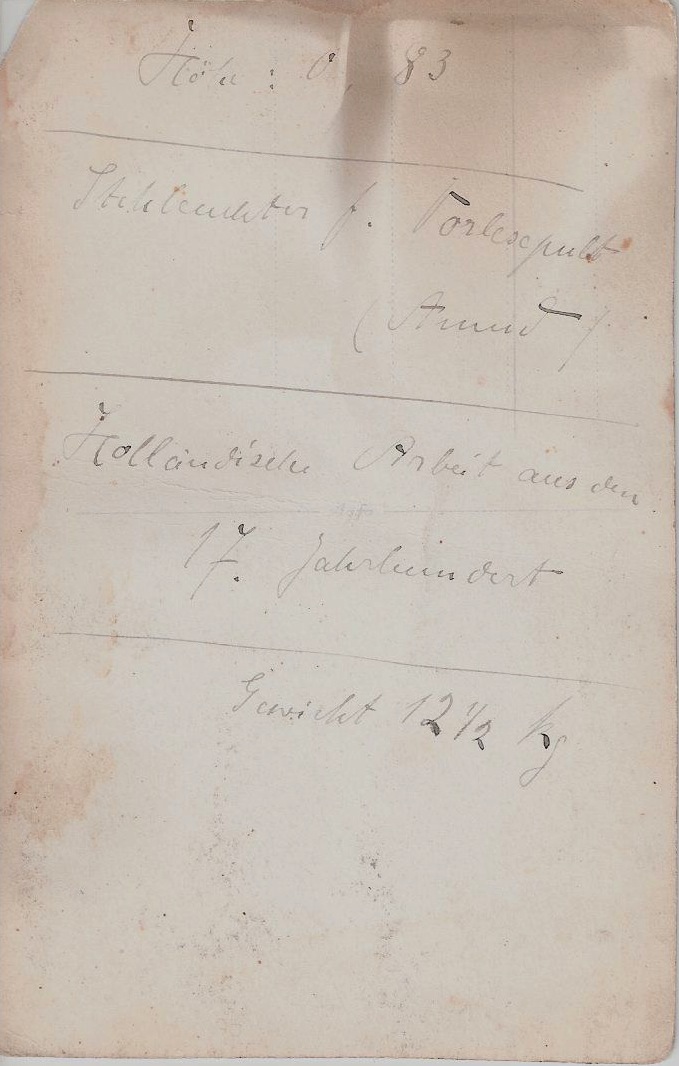 Höhe : 0, 83
Stehleuchter f. Vorlesepult
Holländische Arbeit aus dem
17. Jahrhundert
Gewicht 12 1/2 kg